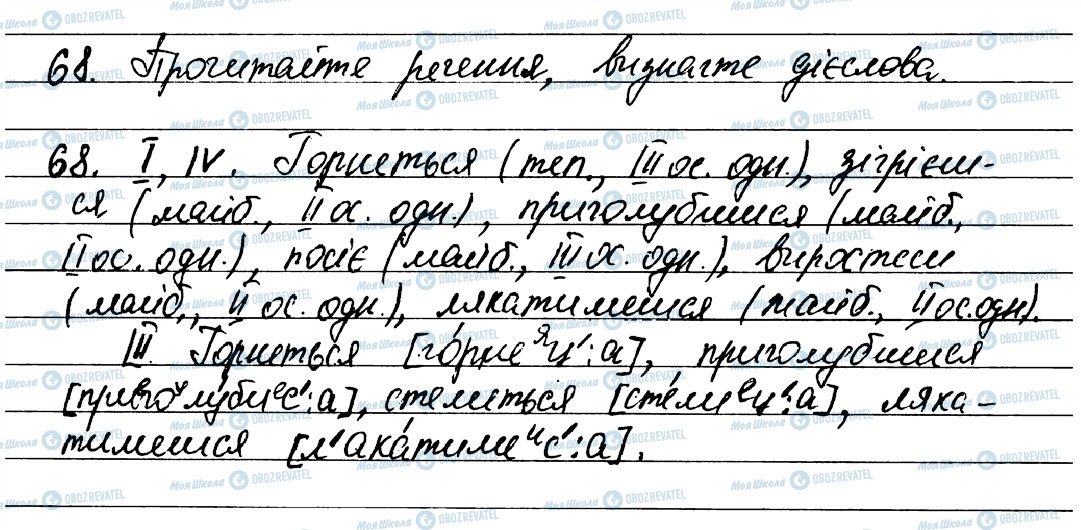 68. Прочитайте речення, визначте дієслова.
68. I, IV. Горнеться (теп., III ос. одн.), зігрієш-
ся (майб., II ос. одн.), приголубишся (майб.,
II ос. одн.), посіє (майб., III ос. одн.), виростеш
(майб., II ос. одн.), лякатимешся (майб., II ос. одн).
III. Горнеться [го́рнеиц':а], приголубишся
[приeгоул́убиeс':а], стелиться [сте́лиeц':а], ляка-
тимешся [л'ака́тимеис':а].